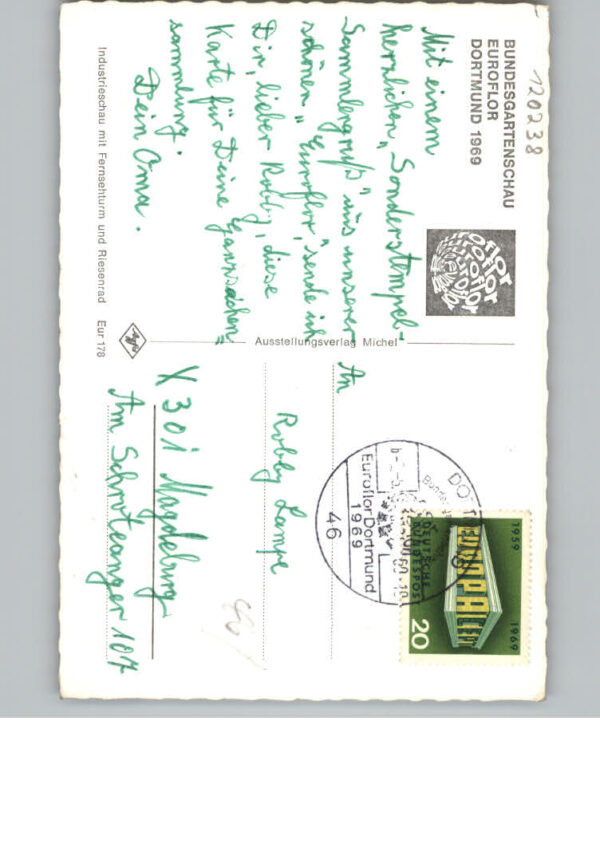 BUNDESGARTENSCHAU
EUROFLOR
DORTMUND 1969
120238
Mit einem
herzlichen „Sonderstempel-
Sammlergruß“ aus unserer
schönen „Euroflor“, sende ich
Dir, lieber Robby, diese
Karte für Deine Ganzsachen=
sammlung.
Dein Oma.
Industrieschau mit Fernsehturm und Riesenrad Eur 178
Agfa
Ausstellungsverlag Michel
An
Robby Lampe
X 301 Magdeburg
Am Schroteanger 107
Euroflor Dortmund
1969
46
1959
1969
EUROPA CEPT
DEUTSCHE
BUNDESPOST
20